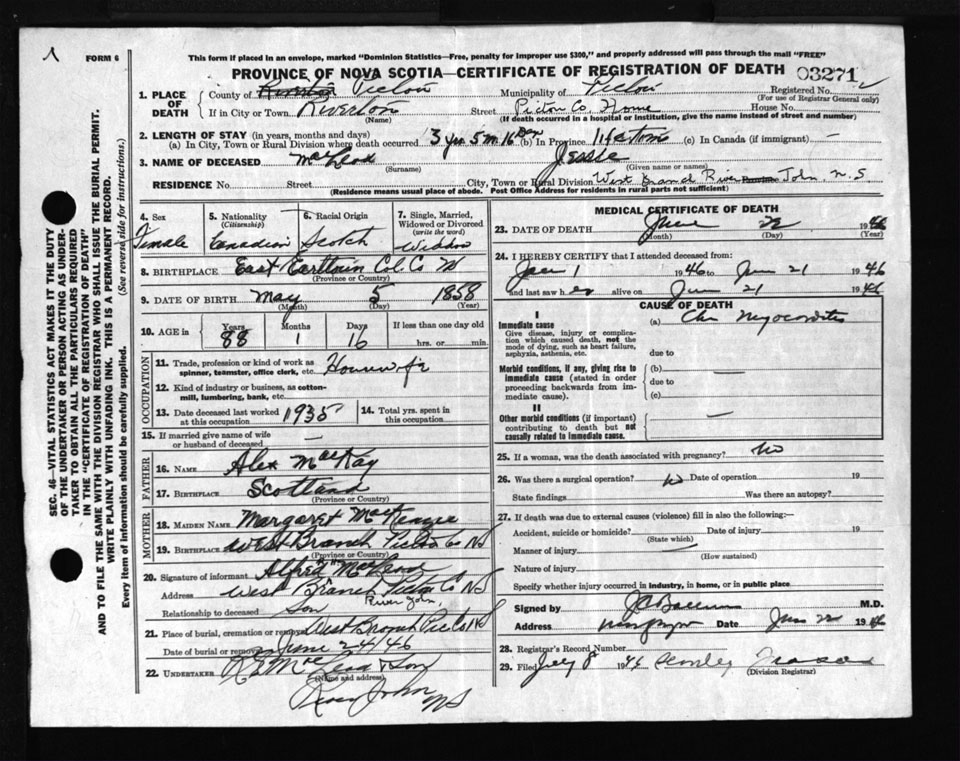 FORM 6
This form if placed in an envelope, marked "Dominion Statistics—Free, penalty for improper use $300," and properly addressed will pass through the mail "FREE"
PROVINCE OF NOVA SCOTIA—CERTIFICATE OF REGISTRATION OF DEATH 03271
1. PLACE OF DEATH
County of Pictou Municipality of Pictou Registered No.
(For use of Registrar General only)
If in City or Town Riverton Street Pictou Co. Home House No.
(Name) (If death occurred in a hospital or institution, give the name instead of street and number)
2. LENGTH OF STAY (in years, months and days)
(a) In City, Town or Rural Division where death occurred 3 yrs 5 m 16 (b) In Province Lifetime (c) In Canada (if immigrant) —
3. NAME OF DECEASED MacLeod Jessie
(Surname) (Given name or names)
RESIDENCE No. Street City, Town or Rural Division West Branch River John N.S.
(Residence means usual place of abode. Post Office Address for residents in rural parts not sufficient)
SEC. 46—VITAL STATISTICS ACT MAKES IT THE DUTY
OF THE UNDERTAKER OR PERSON ACTING AS UNDER-
TAKER TO OBTAIN ALL THE PARTICULARS REQUIRED
IN THE "CERTIFICATE OF REGISTRATION OF DEATH"
AND TO FILE THE SAME WITH THE DIVISION REGISTRAR WHO SHALL ISSUE THE BURIAL PERMIT.
WRITE PLAINLY WITH UNFADING INK. THIS IS A PERMANENT RECORD.
Every item of information should be carefully supplied. (See reverse side for instructions.)
4. Sex Female
5. Nationality (Citizenship) Canadian
6. Racial Origin Scotch
7. Single, Married, Widowed or Divorced (write the word) Widow
8. BIRTHPLACE East Earltown Col. Co
(Province or Country)
9. DATE OF BIRTH May 5 1858
(Month) (Day) (Year)
10. AGE in Years 88 Months 1 Days 16 If less than one day old
hrs. or min.
OCCUPATION
11. Trade, profession or kind of work as spinner, teamster, office clerk, etc. Housewife
12. Kind of industry or business, as cotton-mill, lumbering, bank, etc.
13. Date deceased last worked at this occupation 1935
14. Total yrs. spent in this occupation
15. If married give name of wife or husband of deceased —
FATHER
16. NAME Alex MacKay
17. BIRTHPLACE Scotland
(Province or Country)
MOTHER
18. MAIDEN NAME Margaret MacKenzie
19. BIRTHPLACE West Branch Pictou Co NS
(Province or Country)
20. Signature of informant Alfred MacLeod
Address West Branch Pictou Co NS
River John
Relationship to deceased Son
21. Place of burial, cremation or removal West Branch Pic Co NS
Date of burial or removal June 24/46
22. UNDERTAKER MacLeod & Son
(Name and address)
River John NS
MEDICAL CERTIFICATE OF DEATH
23. DATE OF DEATH June 22 1946
(Month) (Day) (Year)
24. I HEREBY CERTIFY that I attended deceased from:
Jan 1 1946 to June 21 1946
and last saw her alive on June 21 1946
CAUSE OF DEATH
I
Immediate cause (a) Chr Myocarditis
Give disease, injury or complication which caused death, not the mode of dying, such as heart failure, asphyxia, asthenia, etc.
due to
Morbid conditions, if any, giving rise to immediate cause (stated in order proceeding backwards from immediate cause). (b) —
due to
(c)
II
Other morbid conditions (if important) contributing to death but not causally related to immediate cause. —
25. If a woman, was the death associated with pregnancy? No
26. Was there a surgical operation? No Date of operation 19
State findings Was there an autopsy?
27. If death was due to external causes (violence) fill in also the following:
Accident, suicide or homicide? Date of injury 19
(State which)
Manner of injury
(How sustained)
Nature of injury
Specify whether injury occurred in industry, in home, or in public place
Signed by M.D.
Address Date June 22 1946
28. Registrar's Record Number
29. Filed July 8 1946
(Division Registrar)